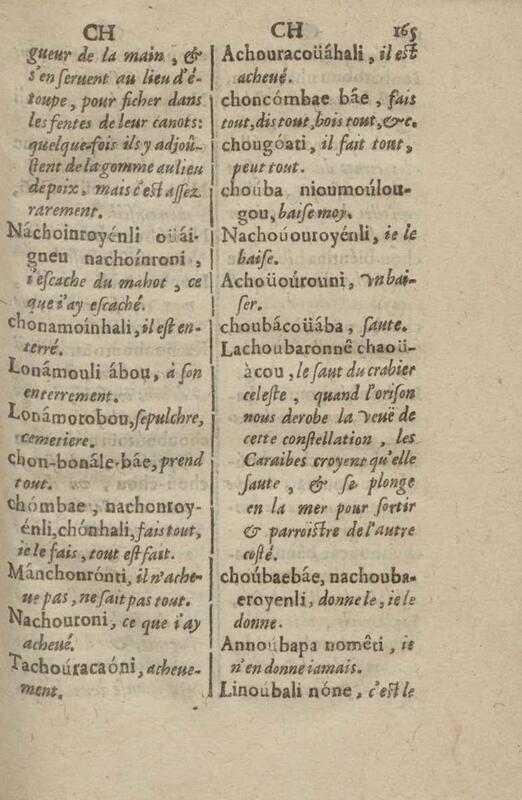 CH
gueur de la main, &
s'en seruent au lieu d'é-
toupe, pour ficher dans
les fentes de leur canots:
quelque-fois ils y adjoû-
stent de la gomme au lieu
de poix, mais c'est assez
rarement.
Náchoinroyénli oüái-
gneu nachoínroni,
i'escache du mahot, ce
que i'ay escaché.
chonamoínhali, il est en-
terré.
Lonámouli ábou, á son
enterrement.
Lonámotobou, sepulchre,
cemetiere.
chon-bonále-báe, prend
tout.
chómbae, nachonroy-
énli, chónhali, fais tout,
ie le fais, tout est fait.
Mánchonrónti, il n'ache-
ue pas, ne fait pas tout.
Nachouroni, ce que i'ay
acheué.
Tachoúracaóni, acheue-
ment.
CH 165
Achouracoüáhali, il est
acheué.
choncómbae báe, fais
tout, dis tout, bois tout, &c.
chougóati, il fait tout,
peut tout.
choúba nioumoúlou-
gou, baise moy.
Nachoúouroyénli, ie le
baise.
Achoüoúrouni, vn bai-
ser.
choubácoüába, saute.
Lachoubaronnê chaoü-
àcou, le saut du crabier
celeste, quand l'orison
nous derobe la veuë de
cette constellation, les
Caraibes croyent qu'elle
saute, & se plonge
en la mer pour sortir
& parroistre de l'autre
costé.
choúbaebáe, nachouba-
eroyenli, donne le, ie le
donne.
Annoúbapa nomêti, ie
n'en donne iamais.
Linoúbali nóne, c'est le